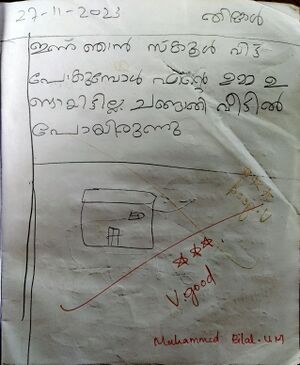 27-11-2023 തിങ്കൾ
ഇന്ന് ഞാൻ സ്കൂൾ വിട്ട്
പോകുമ്പോൾ എന്റെ ഉമ്മ ഉ
ണ്ടായിട്ടില്ല ചങ്ങാതി വീട്ടിൽ
പോയിരുന്നു
V.good
Muhammed Bilal.U.M